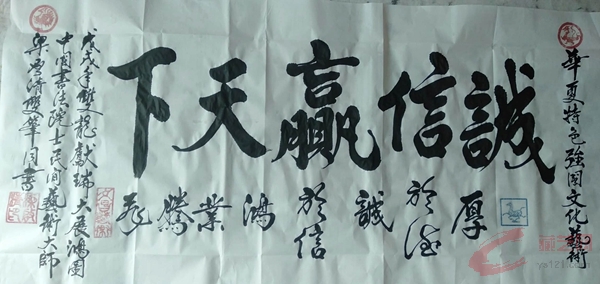 華夏特色強国文化藝術
誠信贏天下
厚於德誠於信鴻業騰飛
戊戌年雙龍獻瑞大展鴻圖
中国書法院士民间藝術大師
梁清雙筆同書